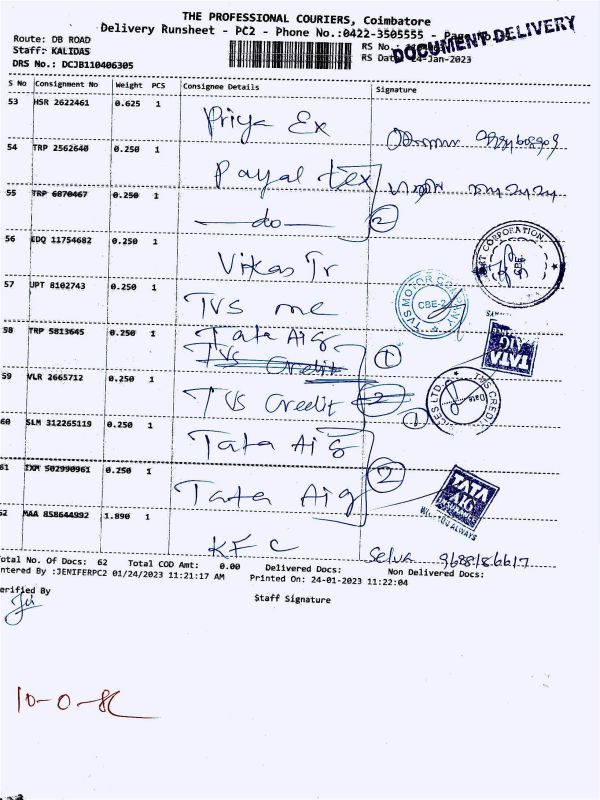 THE PROFESSIONAL COURIERS, Coimbatore
Delivery Runsheet - PC2 - Phone No.:0422-3505555 - Page No.
DOCUMENT DELIVERY
Route: DB ROAD
RS No.:
Staff: KALIDAS
RS Date 24-Jan-2023
DRS No.: DCJB110406305
S No Consignment No Weight PCS Consignee Details Signature
53 HSR 2622461 0.625 1 Priya Ex
54 TRP 2562640 0.250 1 Payal tex
55 TRP 6870467 0.250 1 do 2
56 EDQ 11754682 0.250 1 Vikas Tr
CORPORATION CBE
57 UPT 8102743 0.250 1 TVS me
TVS MOTOR COMPANY CBE-2
58 TRP 5813645 0.250 1 Tata Aig 1
TVS Credit
TATA AIG
59 VLR 2665712 0.250 1 TVS Credit 2 1
TVS CREDIT CES LTD Date
60 SLM 312265119 0.250 1 Tata Aig
61 IXM 502990961 0.250 1 Tata Aig 2
TATA AIG
WITH YOU ALWAYS
62 MAA 858644992 1.890 1 KFC Selva 9688186617
Total No. Of Docs: 62 Total COD Amt: 0.00 Delivered Docs: Non Delivered Docs:
Entered By :JENIFERPC2 01/24/2023 11:21:17 AM Printed On: 24-01-2023 11:22:04
Verified By Staff Signature